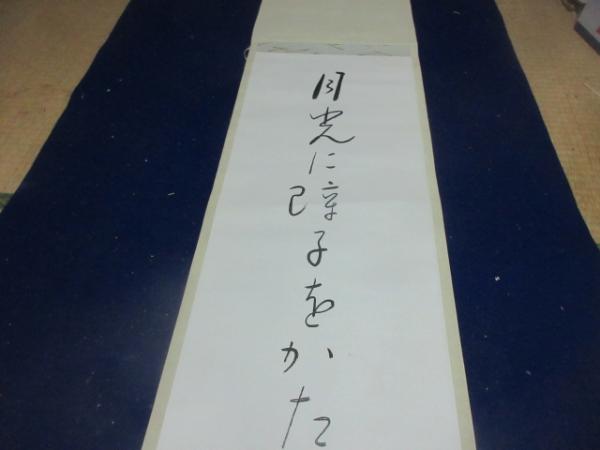 月光に障子をかた